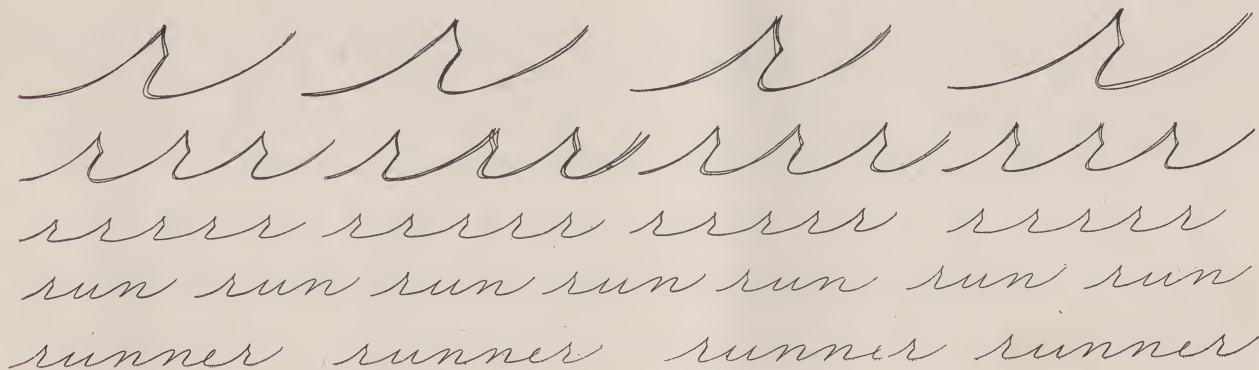 r r r r
rrr rrr rrr rrr
rrrrr rrrrr rrrrr rrrrr
run run run run run run run
runner runner runner runner